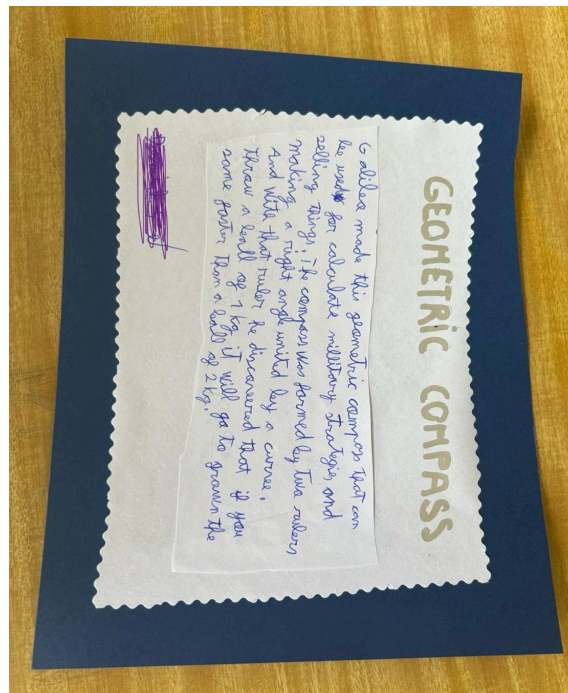 GEOMETRIC COMPASS
Galileo made this geometric compass that can
be used for calculate millitary strategies and
selling things. The compass was formed by two rulers
making a right angle united by a curve.
And with that ruler he discovered that if you
throw a ball of 1 kg it will go to groun the
same faster than a ball of 2 kg.